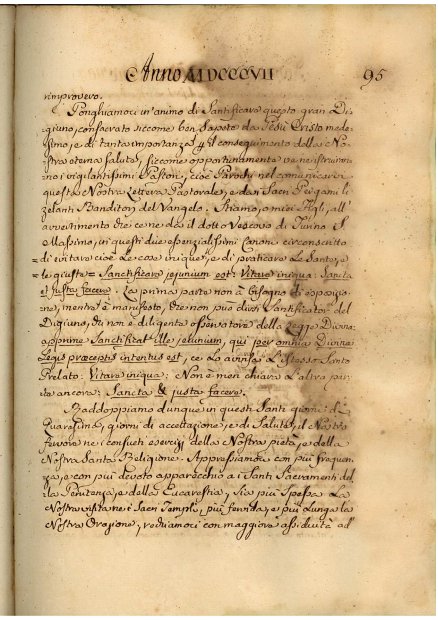 Anno MDCCCVII
95
rimprovero.
Ponghiamoci in animo di Santificare questo gran Di-
giuno, consacrato siccome ben sapete da Gesù Cristo mede-
simo, e di tanta importanza p il conseguimento della No-
stra eterna salute, siccome opportunamente ve ne istruiran-
no i vigilantissimi Pastori, cioè Parochi nel comunicarvi
questa Nostra Lettera Pastorale, e dai Sacri Pergami i
zelanti Banditori del Vangelo. Stiamo, o miei Figli, all'
avvertimento che ce ne dà il dotto Vescovo di Turino S.
Massimo, in questi due essenzialissimi Canoni circonscritto
= di evitare cioè le cose inique, e di praticare le Sante, e
le giuste = Sanctificare jejunium est: Vitare iniqua: Sancta
et justa facere. La prima parte non à bisogno di esposizio-
ne, mentr'è manifesto, che non può dirsi Santificator del
Digiuno, chi non è diligente osservatore della Legge Divina:
apprime Sanctificat ille jejunium, qui per omnia Divinæ
Legis præceptis intentus est, ce lo avvisa l'istesso Santo
Prelato: Vitare iniqua. Non è men chiara l'altra par-
te ancora: Sancta & justa facere.
Raddoppiamo dunque in questi Santi giorni di
Quaresima, giorni di accettazione, e di Salute, il Nostro
fervore ne' consueti esercizj della Nostra pietà, e della
Nostra Santa Religione. Appressiamoci con più frequen-
za, e con più devoto apparecchio ai Santi Sacramenti del-
la Penitenza, e della Eucarestia, sia più spessa la
Nostra visita nei Sacri Tempj, più fervida, e più lunga la
Nostra Orazione, rechiamoci con maggiore assiduità ad